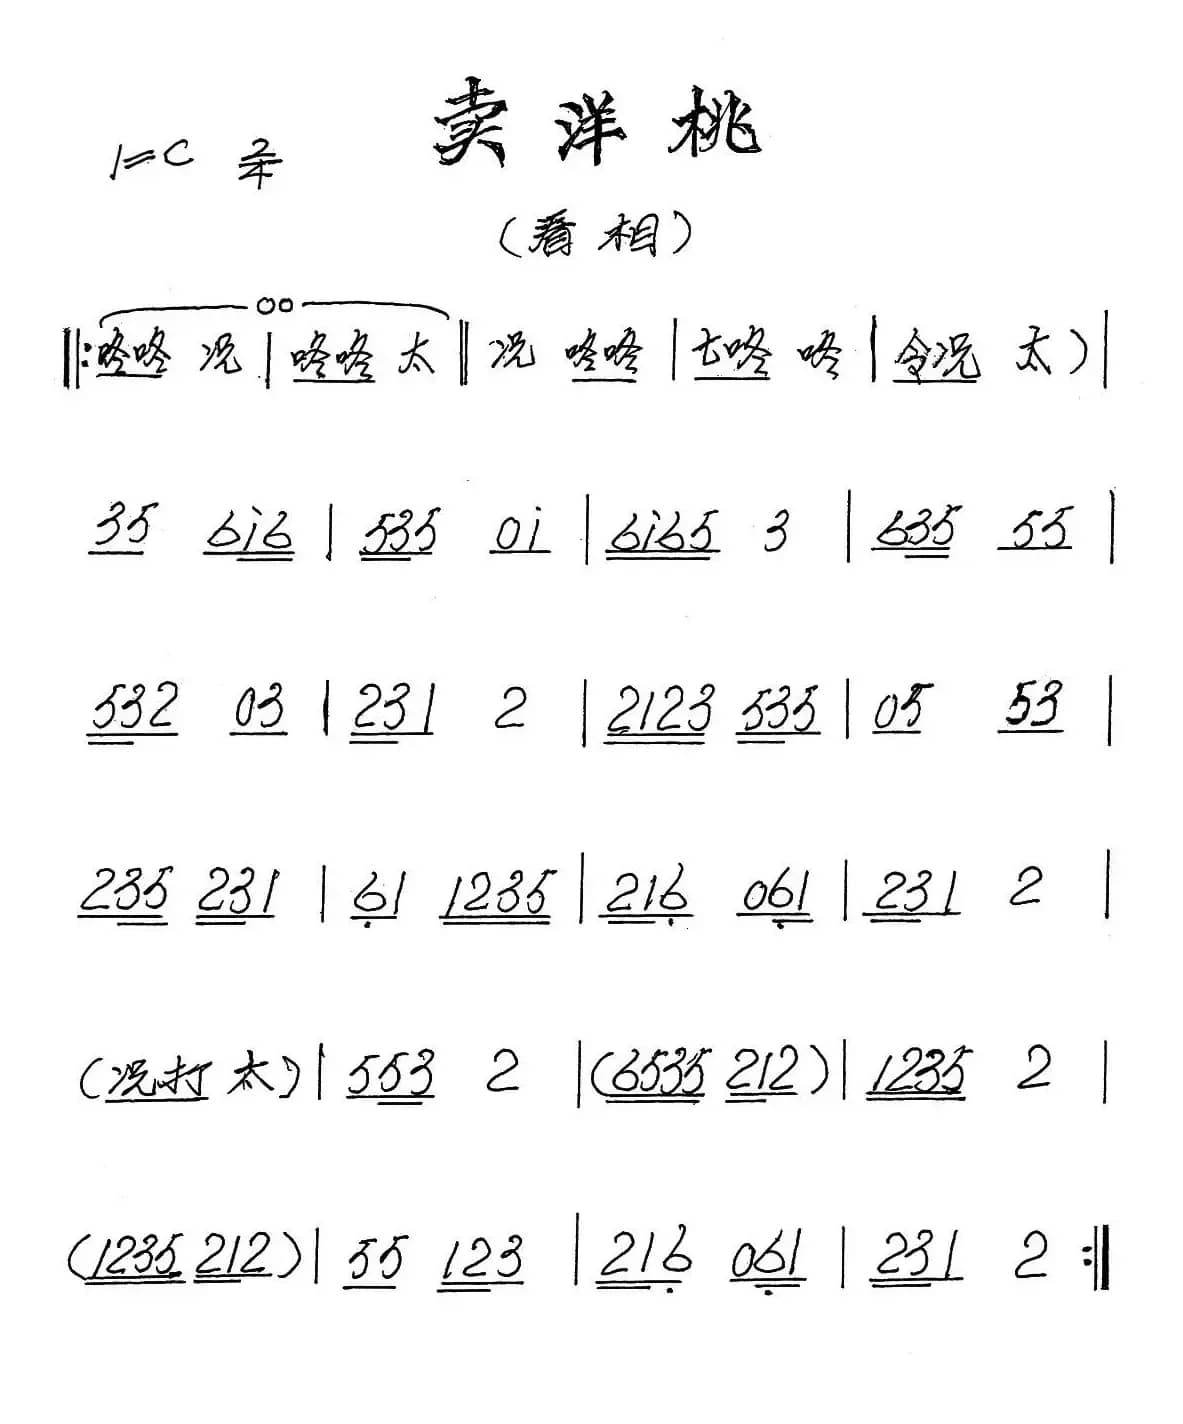 卖洋桃
1=C 2/4
（看相）
‖:咚咚 况 | 咚咚 太 ‖ 况 咚咚 | 七咚 咚 | 令况 太）|
35 6i6 | 535 0i | 6i65 3 | 635 55 |
532 03 | 231 2 | 2123 535 | 05 53 |
235 231 | 6̣1 1235 | 216̣ 06̣1 | 231 2 |
（况打 太）| 553 2 |（6535 212）| 1235 2 |
（1235 212）| 55 123 | 216̣ 06̣1 | 231 2 :‖